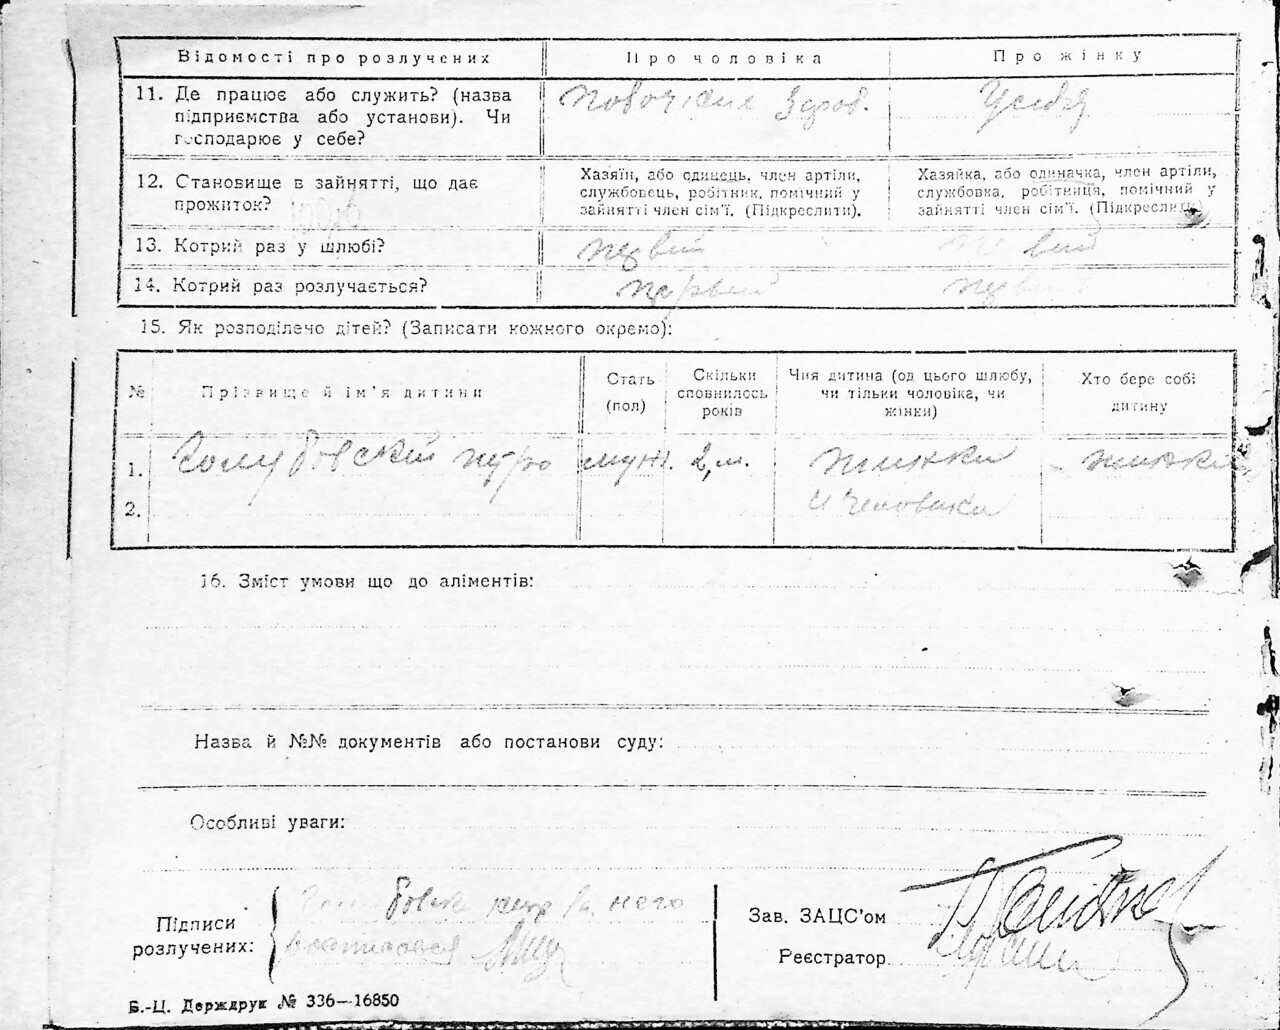 Відомості про розлучених Про чоловіка Про жінку
11. Де працює або служить? (назва підприємства або установи). Чи господарює у себе?
12. Становище в зайнятті, що дає прожиток?
Хазяїн, або одинець, член артілі, службовець, робітник, помічний у зайнятті член сім'ї. (Підкреслити).
Хазяйка, або одиначка, член артілі, службовка, робітниця, помічний у зайнятті член сім'ї. (Підкреслити)
13. Котрий раз у шлюбі? первий вий
14. Котрий раз розлучається? первий
15. Як розподілено дітей? (Записати кожного окремо):
№ Прізвище й ім'я дитини Стать (пол) Скільки сповнилось років Чия дитина (од цього шлюбу, чи тільки чоловіка, чи жінки) Хто бере собі дитину
1. Голубовский петро муж. 2 м. жинки жинка
2. и человика
16. Зміст умови що до аліментів:
Назва й №№ документів або постанови суду:
Особливі уваги:
Підписи розлучених: него
Зав. ЗАЦС'ом
Реєстратор
Б.-Ц. Держдрук № 336—16850